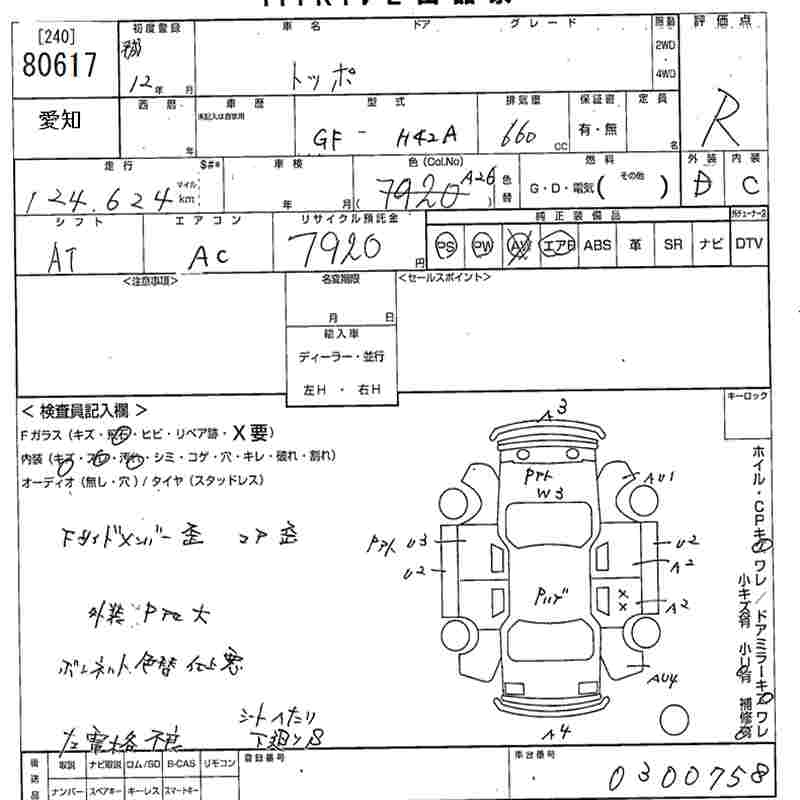 [240]
80617
初度登録
車名
ドア
グレード
照動
2WD
・
4WD
評価点
12年 月
トッポ
R
愛知
西暦
年
車歴
未記入は自家用
型式
GF - H42A
排気量
660 CC
保証書
有・無
定員
名
走行
$#*
124,624
マイル
km
車検
年 月
色 (Col.No)
( 7920 A26 )
色替
燃料
G・D・電気( その他 )
外装
D
内装
C
シフト
AT
エアコン
AC
リサイクル預託金
7920
円
純正装備品
PS PW AW エアB ABS 革 SR ナビ DTV
<注意事項>
名変期限
月 日
<セールスポイント>
輸入車
ディーラー・並行
左H ・ 右H
キーロック
< 検査員記入欄 >
Fガラス (キズ・飛石・ヒビ・リペア跡・X要)
内装 (キズ・スレ・汚れ・シミ・コゲ・穴・キレ・破れ・割れ)
オーディオ (無し・穴) / タイヤ (スタッドレス)
FサイドXンバー歪 コア歪
外装 Pアト 大
ボンネット 色替 仕上悪
左電格不良
シートへたり
下廻りS
A3
Pアト
W3
AU1
Pアト U3
U2
U2
A2
A2
Pハゲ
AU4
A4
ホイル・CPキズ ワレ / ドアミラーキズ ワレ
小キズ有 小U有 補修有
後送品
取説 ナビ取説 ロム/SD B-CAS リモコン
ナンバー スペアキー キーレス スマートキー
登録番号
車台番号
0300758